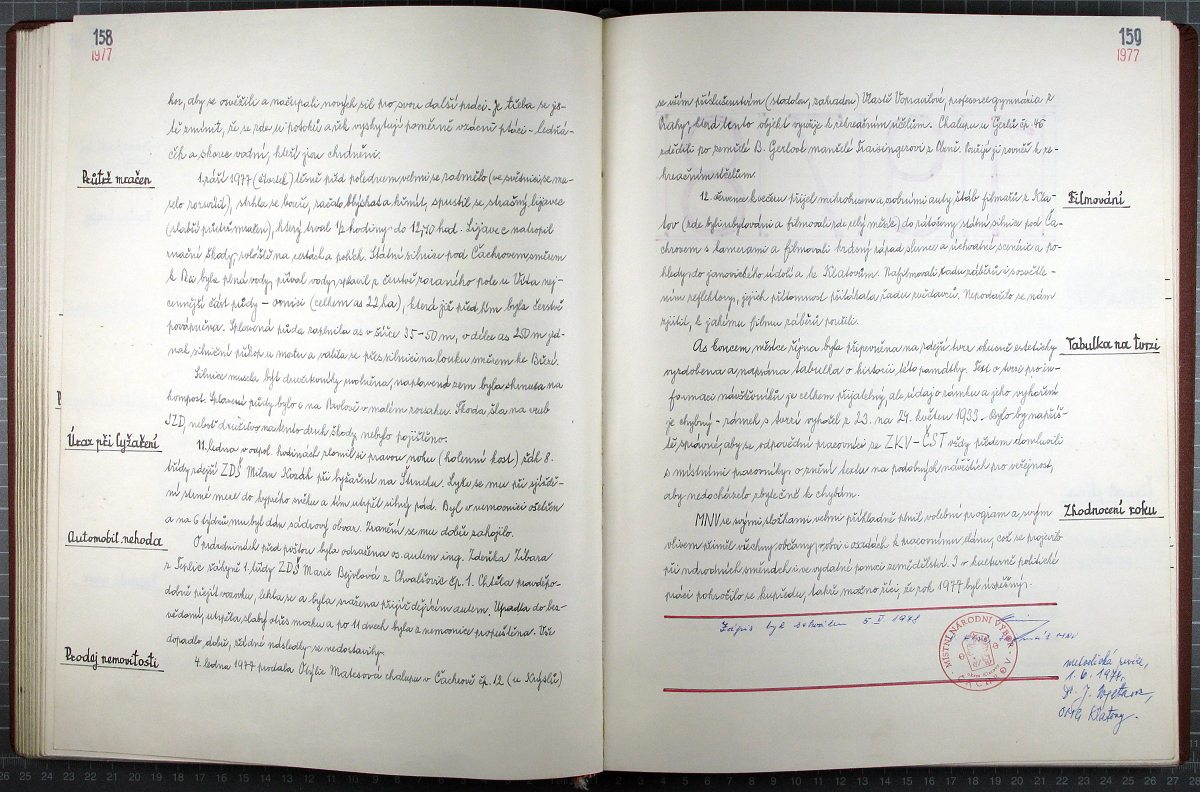 158
1977
hor, aby se osvěžili a načerpali nových sil pro svou další práci. Je třeba se je-
ště zmínit, že se zde u potoků a řek vyskytují poměrně vzácní ptáci - ledňá-
ček a skorec vodní, kteří jsou chráněni.
Průtrž mračen
1. září 1977 (čtvrtek) těsně před polednem velmi se zatmělo (ve světnici se mu-
selo rozsvítit), strhla se bouře, začalo blýskat a hřmít, spustil se strašný lijavec
(slabší průtrž mračen), který trval 1/2 hodiny do 12,40 hod. Lijavec natropil
značné škody, zvláště na cestách a polích. Státní silnice pod Čachrovem směrem
k Bíž byla plná vody, příval vody splavil z čerstvě zoraného pole uÚsta nej-
cennější část půdy - ornici (celkem as 22 ha), která již před tím byla čerstvě
povápněna. Splavená půda zaplnila as v šířce 35-50 m, o délce as 250 m jed-
nak silniční příkop u mostu a valila se přes silnici na louku směrem ke Březí.
Silnice musela být družstevníky uvolněna, naplavená zem byla shrnuta na
kompost. Splavení půdy bylo i na Pavlově v malém rozsahu. Škoda šla na vrub
JZD, neboť družstvo na tento druh škody nebylo pojištěno.
Úraz při lyžaření
11. ledna v odpol. hodinách zlomil si pravou nohu (holenní kost) žák 8.
třídy zdejší ZDŠ Milan Kozák při lyžaření na Struchu. Lyže se mu při sjíždě-
ní strmé meze do sypkého sněhu a tím utrpěl silný pád. Byl v nemocnici ošetřen
a na 6 týdnů mu byl dán sádrový obvaz. Zranění se mu dobře zahojilo.
Automobil. nehoda
O prázdninách před poštou byla odražena os. autem ing. Zdeňka Zíbara
z Teplic žákyně 1. třídy ZDŠ Marie Bejvlová z Chvalšovic čp. 1. Chtěla pravděpo-
dobně přejít vozovku, lekla se a byla sražena přijíždějícím autem. Upadla do bez-
vědomí, utrpěla slabý otřes mozku a po 11 dnech byla z nemocnice propuštěna. Vše
dopadlo dobře, žádné následky se nedostavily.
Prodej nemovitosti
4. ledna 1977 prodala Otýlie Matesová chalupu v Čachrově čp. 12 (u Krýslů)
159
1977
se vším příslušenstvím (stodolou, zahradou) Vlastě Vopravilové, profesorce gymnázia z
Prahy, která tento objekt využije k rekreačním účelům. Chalupu u Gerlů čp. 46
zdědili po zemřelé B. Gerlové manželé Traisingerovi z Plzně. Využijí ji rovněž k re-
kreačním účelům.
Filmování
12. července k večeru přijel mikrobusem a osobními auty štáb filmařů z Kla-
tov (zde byli ubytováni a filmovali zde celý měsíc) do zatáčky státní silnice pod Ča-
chrovem s kamerami a filmovali krásný západ slunce a úchvatné scenérie a po-
hledy do janovického údolí a ke Klatovům. Nafilmovali řadu záběrů i s osvětle-
ním reflektory, jejich přítomnost přilákala řadu zvědavců. Nepodařilo se nám
zjistit, k jakému filmu záběrů použili.
Tabulka na tvrzi
As koncem měsíce října byla připevněna na zdejší tvrz vkusně esteticky
vyzdobena a napsána tabulka o historii této památky. Text o tvrzi pro in-
formaci návštěvníků je celkem přijatelný, ale údaj o zámku a jeho vyhoření
je chybný - zámek s tvrzí vyhořel z 23. na 24. květen 1933. Bylo by napříš-
tě správné, aby se odpovědní pracovníci ze ZKV-ČST vždy předem domluvili
s místními pracovníky o znění textu na podobných návěštích pro veřejnost,
aby nedocházelo zbytečně k chybám.
Zhodnocení roku
MNV se svými složkami velmi příkladně plnil volební program a svým
vlivem přiměl všechny občany, v obci i osadách k pracovnímu elánu, což se projevilo
při národních směnách i ve vydatné pomoci zemědělství. I v kulturně politické
práci pokročilo se kupředu, takže možno říci, že rok 1977 byl úspěšný.
Zápis byl schválen 5. II 1978
MÍSTNÍ NÁRODNÍ VÝBOR
ČACHROV
metodická revize,
1. 6. 1978,
OMK Klatovy.